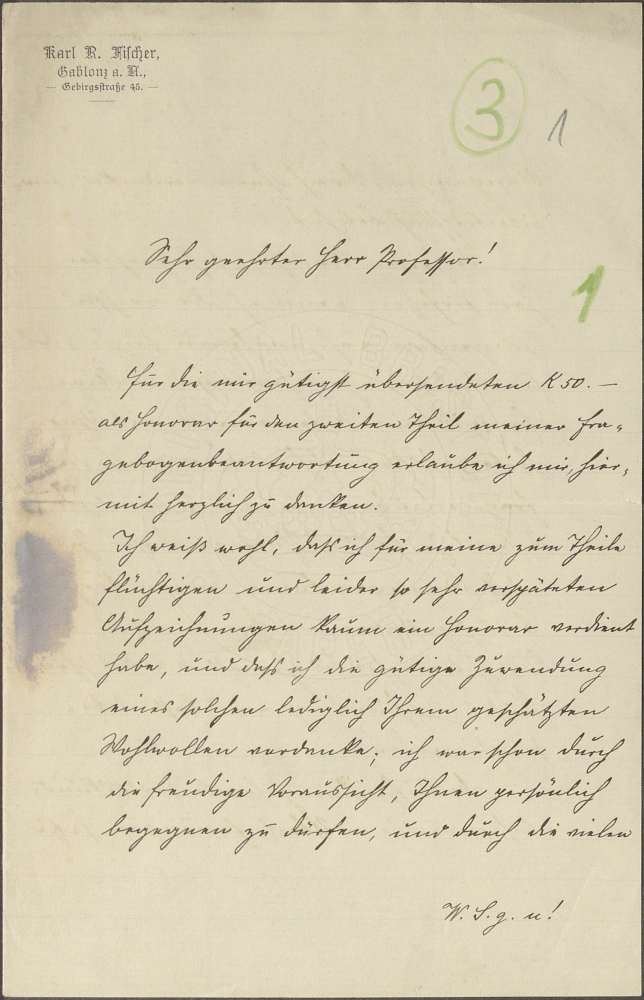 Karl R. Fischer,
Gablonz a. N.,
— Gebirgsstraße 45. —
3
1
Sehr geehrter Herr Professor!
1
Für die mir gütigst übersendeten K 50.—
als Honorar für den zweiten Theil meiner Fra-
gebogenbeantwortung erlaube ich mir, hier-
mit herzlich zu danken.
Ich weiß wohl, dass ich für meine zum Theile
flüchtigen und leider so sehr verspäteten
Aufzeichnungen kaum ein Honorar verdient
habe, und dass ich die gütige Zuwendung
eines solchen lediglich Ihrem geschätzten
Wohlwollen verdanke; ich war schon durch
die freudige Voraussicht, Ihnen persönlich
begegnen zu dürfen, und durch die vielen
W. S. g. u!